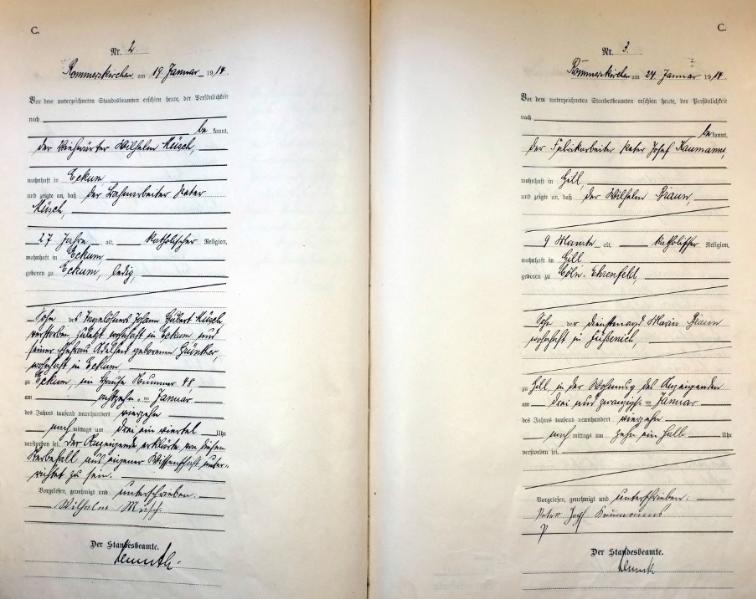 C.
Nr. 2
Rommerskirchen am 19 Januar 1914.
Vor dem unterzeichneten Standesbeamten erschien heute, der Persönlichkeit
nach
be kannt,
der Wilhelm
wohnhaft in Eckum
und zeigte an, daß der Bahnarbeiter Peter
27 Jahre alt, katholischer Religion,
wohnhaft in Eckum
geboren zu Eckum, ledig,
Sohn des Tagelöhners Johann Hubert
verstorben zuletzt wohnhaft in Eckum und
seiner Ehefrau Adelheid geborenen Günther,
wohnhaft in Eckum
zu Eckum, im Hause Nummer 48
am Januar
des Jahres tausend neunhundert vierzehn
nach mittags um drei ein viertel Uhr
verstorben sei. Der Anzeigende erklärte von diesem
Sterbefall aus eigener Wissenschaft unter-
richtet zu sein.
Vorgelesen, genehmigt und unterschrieben.
Wilhelm
Der Standesbeamte.
C.
Nr. 3.
Rommerskirchen am 24 Januar 1914.
Vor dem unterzeichneten Standesbeamten erschien heute, der Persönlichkeit
nach
be kannt,
der Peter Josef Baumanns,
wohnhaft in Gill,
und zeigte an, daß der Wilhelm Braun,
9 Monate alt, katholischer Religion,
wohnhaft in Gill
geboren zu Cöln-Ehrenfeld,
Sohn der Dienstmagd Maria Braun
wohnhaft in
zu Gill in der Wohnung des Anzeigenden
am drei und zwanzigsten Januar
des Jahres tausend neunhundert vierzehn
nach mittags um zehn ein halb Uhr
verstorben sei.
Vorgelesen, genehmigt und unterschrieben.
Peter Josef Baumanns
Der Standesbeamte.